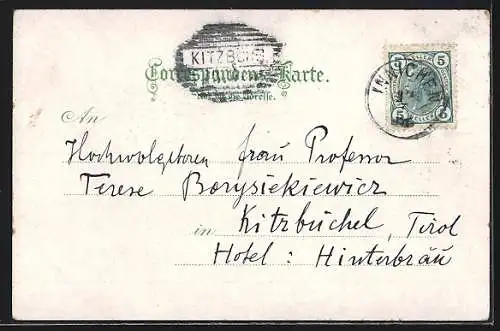 KITZBÜHEL
Correspondenz-Karte.
Adresse.
5 5
INNICHEN
5 HELLER 5
An
Hochwolgeboren Frau Professor
Terese Borysiekiewicz
in Kitzbüchel, Tirol
Hotel: Hinterbräu